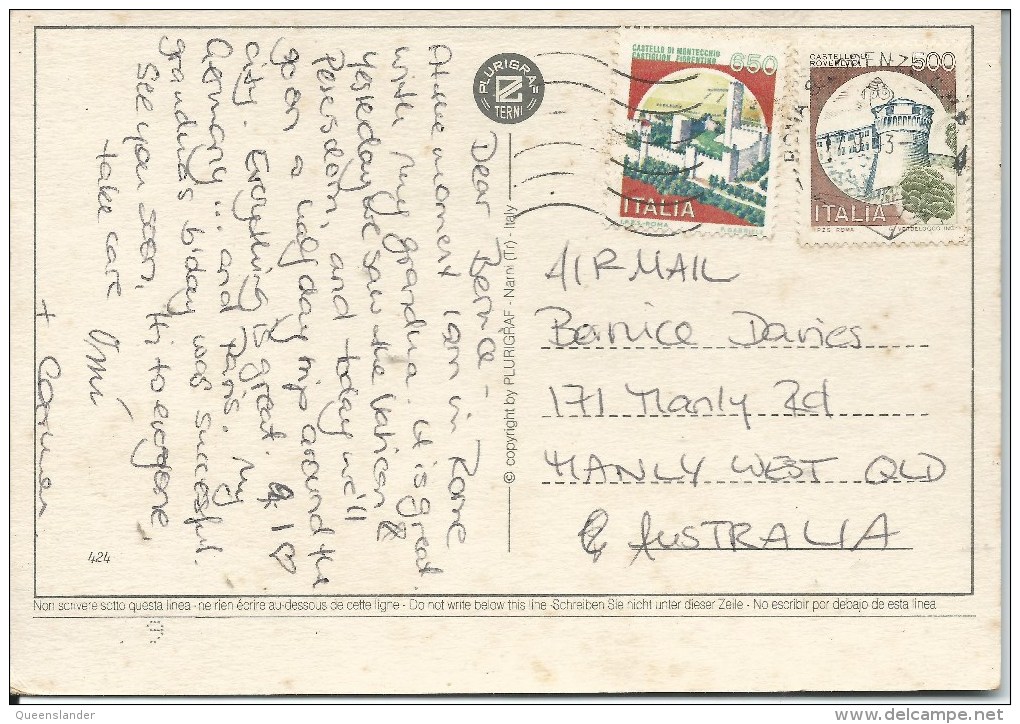 Dear Bernice -
At the moment I am in Rome
with my grandma. It is great.
Yesterday we saw the Vatican &
and today we'll
go on a half day trip around the
city. Everything is great. I ♡
Germany... and Paris. My
grandmas b'day was successful.
See you soon, Hi to everyone,
take care
+ Carmen
424
PLURIGRAF
TERNI
© copyright by PLURIGRAF - Narni (Tr) - Italy
CASTELLO DI MONTECCHIO
CASTIGLION FIORENTINO
650
ITALIA
I.P.Z.S.-ROMA
CASTELLO DI
ROVERETO
500
ITALIA
I.P.Z.S. ROMA
ROMA
AIRMAIL
Bernice Davies
171 Manly Rd
MANLY WEST QLD
AUSTRALIA
Non scrivere sotto questa linea - ne rien écrire au-dessous de cette ligne - Do not write below this line - Schreiben Sie nicht unter dieser Zeile - No escribir por debajo de esta linea
Queenslander
www.delcampe.net